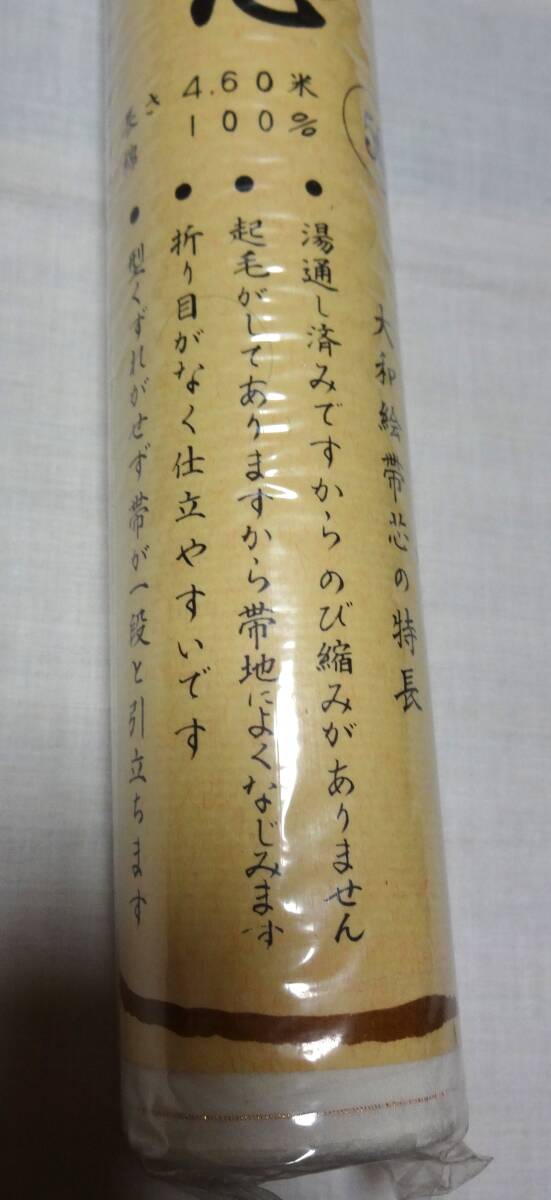 芯
さ 4.60米
綿 100%
大和絵帯芯の特長
●湯通し済みですからのび縮みがありません
●起毛がしてありますから帯地によくなじみます
●折り目がなく仕立やすいです
●型くずれがせず帯が一段と引立ちます